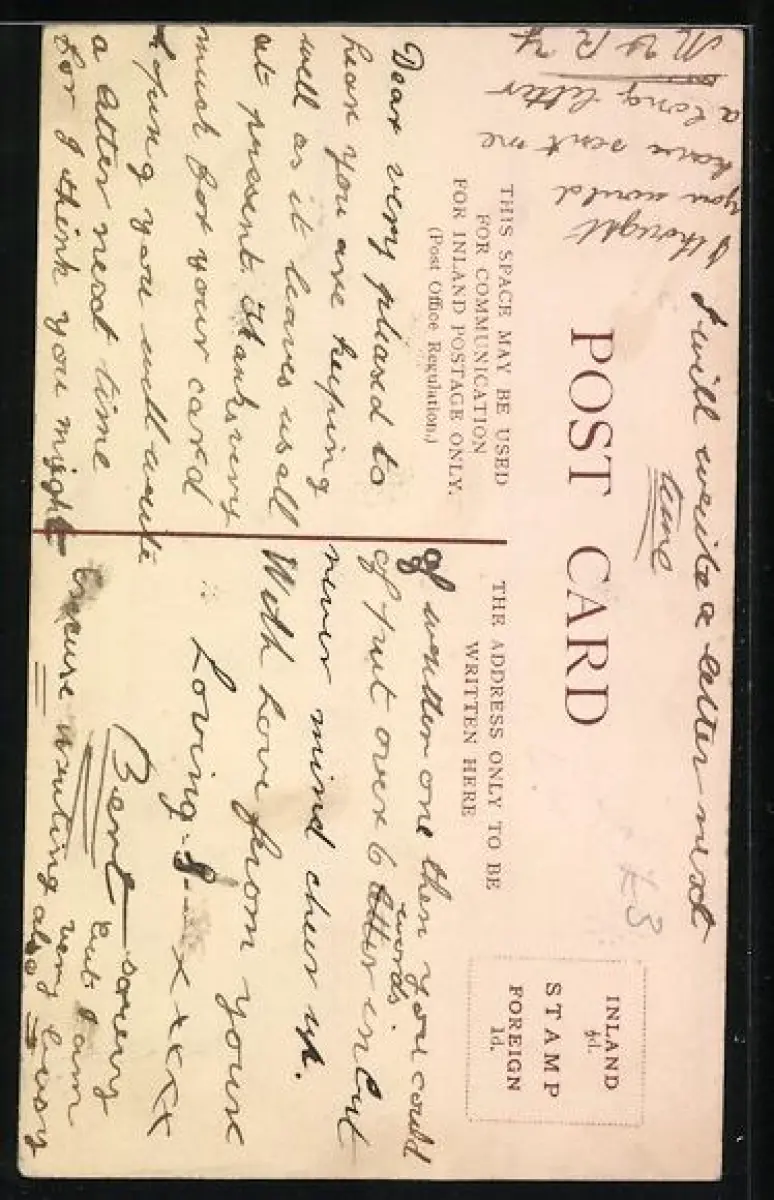 I will write a letter next
time
I thought
you would
have sent me
a long letter
POST CARD
THIS SPACE MAY BE USED
FOR COMMUNICATION
FOR INLAND POSTAGE ONLY.
(Post Office Regulation.)
THE ADDRESS ONLY TO BE
WRITTEN HERE
INLAND
½d.
STAMP
FOREIGN
1d.
£3
Dear very pleased to
hear you are keeping
well as it leaves us all
at present. Thanks very
much for your card
hoping you will write
a letter next time
for I think you might
of written one then you could
of put over 6 words
letter in but
never mind cheer up.
With love from your
Loving
x x x x x
Bert
sorry
but I am
very busy
Excuse writing also